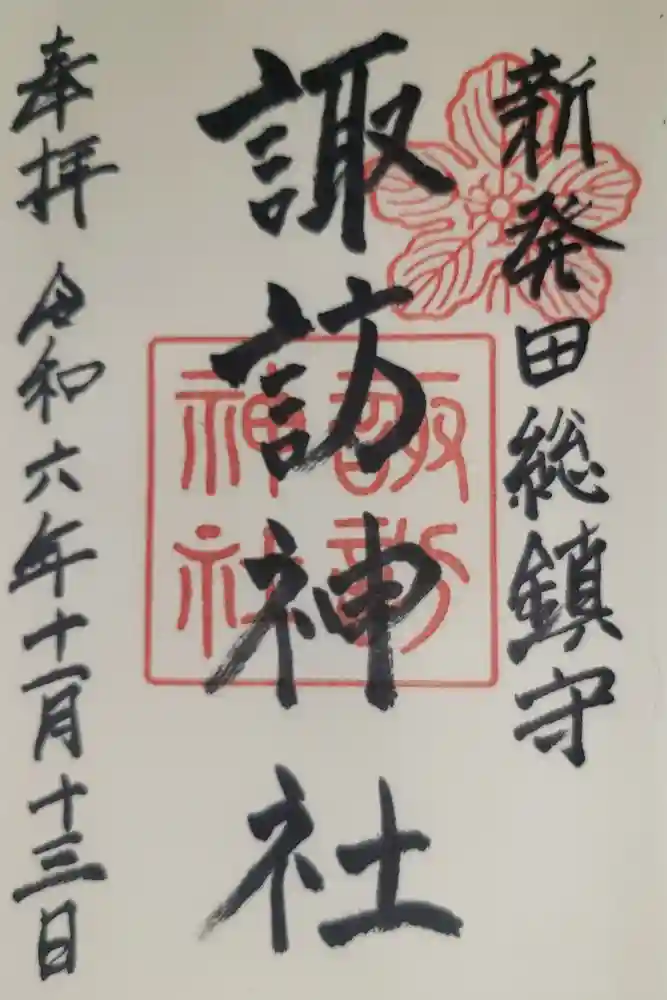 新発田総鎮守
諏訪神社
奉拝 令和六年十一月十三日
諏訪
神社